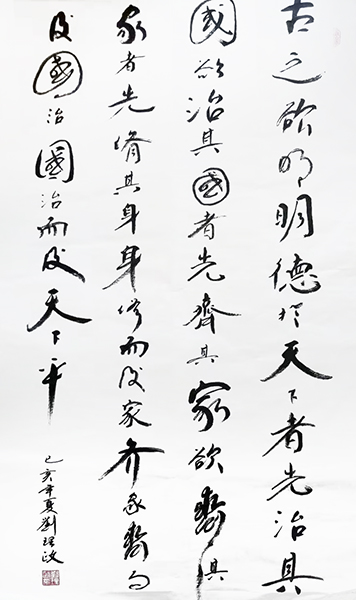 古之欲明明德於天下者先治其
國欲治其國者先齊其家欲齊其
家者先脩其身身修而後家齐家齊而
後國治國治而後天下平
己亥年夏劉理政